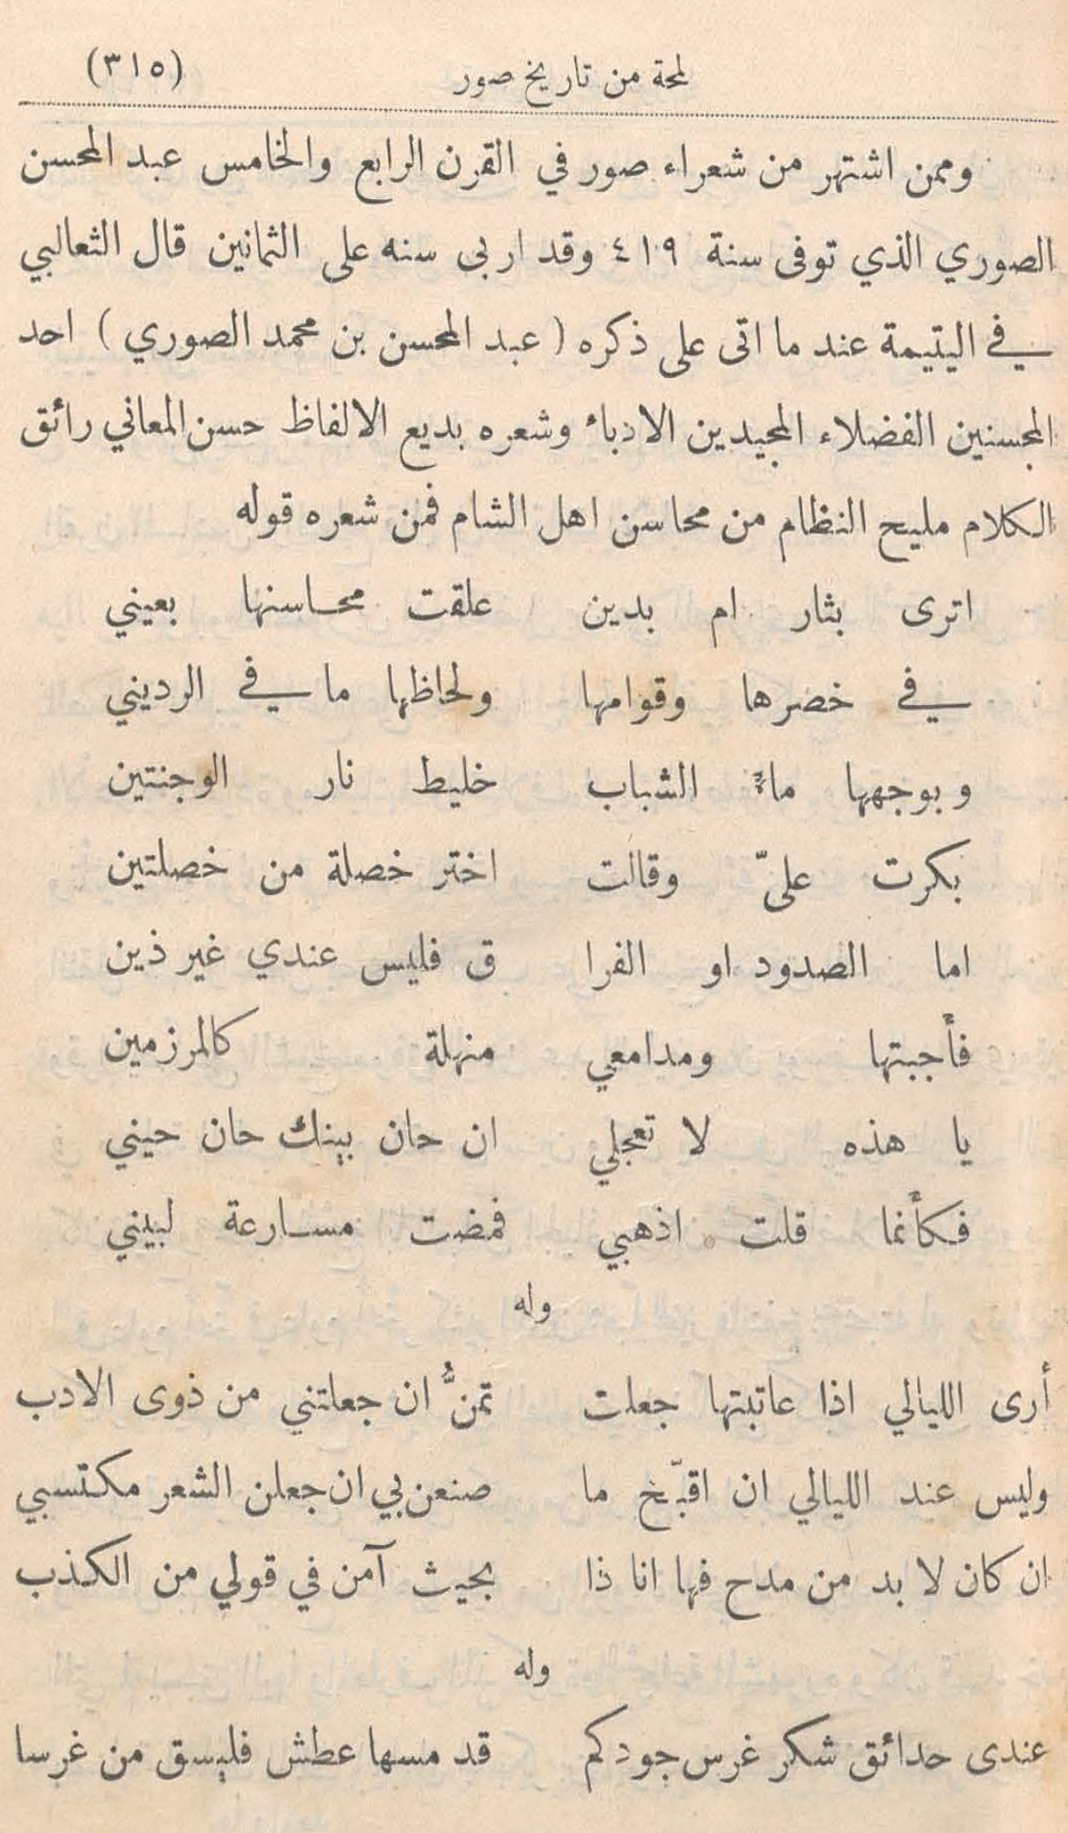 لمحة من تاريخ صور (٣١٥)
وممن اشتهر من شعراء صور في القرن الرابع والخامس عبد المحسن
الصوري الذي توفى سنة ٤١٩ وقد اربى سنه على الثمانين قال الثعالبي
في اليتيمة عند ما اتى على ذكره ( عبد المحسن بن محمد الصوري ) احد
المحسنين الفضلاء المجيدين الادباء وشعره بديع الالفاظ حسن المعاني رائق
الكلام مليح النظام من محاسن اهل الشام فمن شعره قوله
اترى بثار ام بدين علقت محاسنها بعيني
في خصرها وقوامها ولحاظها ما في الرديني
وبوجهها ماء الشباب خليط نار الوجنتين
بكرت عليّ وقالت اختر خصلة من خصلتين
اما الصدود او الفرا ق فليس عندي غير ذين
فأجبتها ومدامعي منهلة كالمرزمين
يا هذه لا تعجلي ان حان بينك حان حيني
فكأنما قلت اذهبي فمضت مسارعة لبيني
وله
أرى الليالي اذا عاتبتها جعلت تمنُّ ان جعلتني من ذوى الادب
وليس عند الليالي ان اقبّح ما صنعن بي ان جعلن الشعر مكتسبي
ان كان لا بد من مدح فها انا ذا بحيث آمن في قولي من الكذب
وله
عندى حدائق شكر غرس جودكم قد مسها عطش فليسق من غرسا